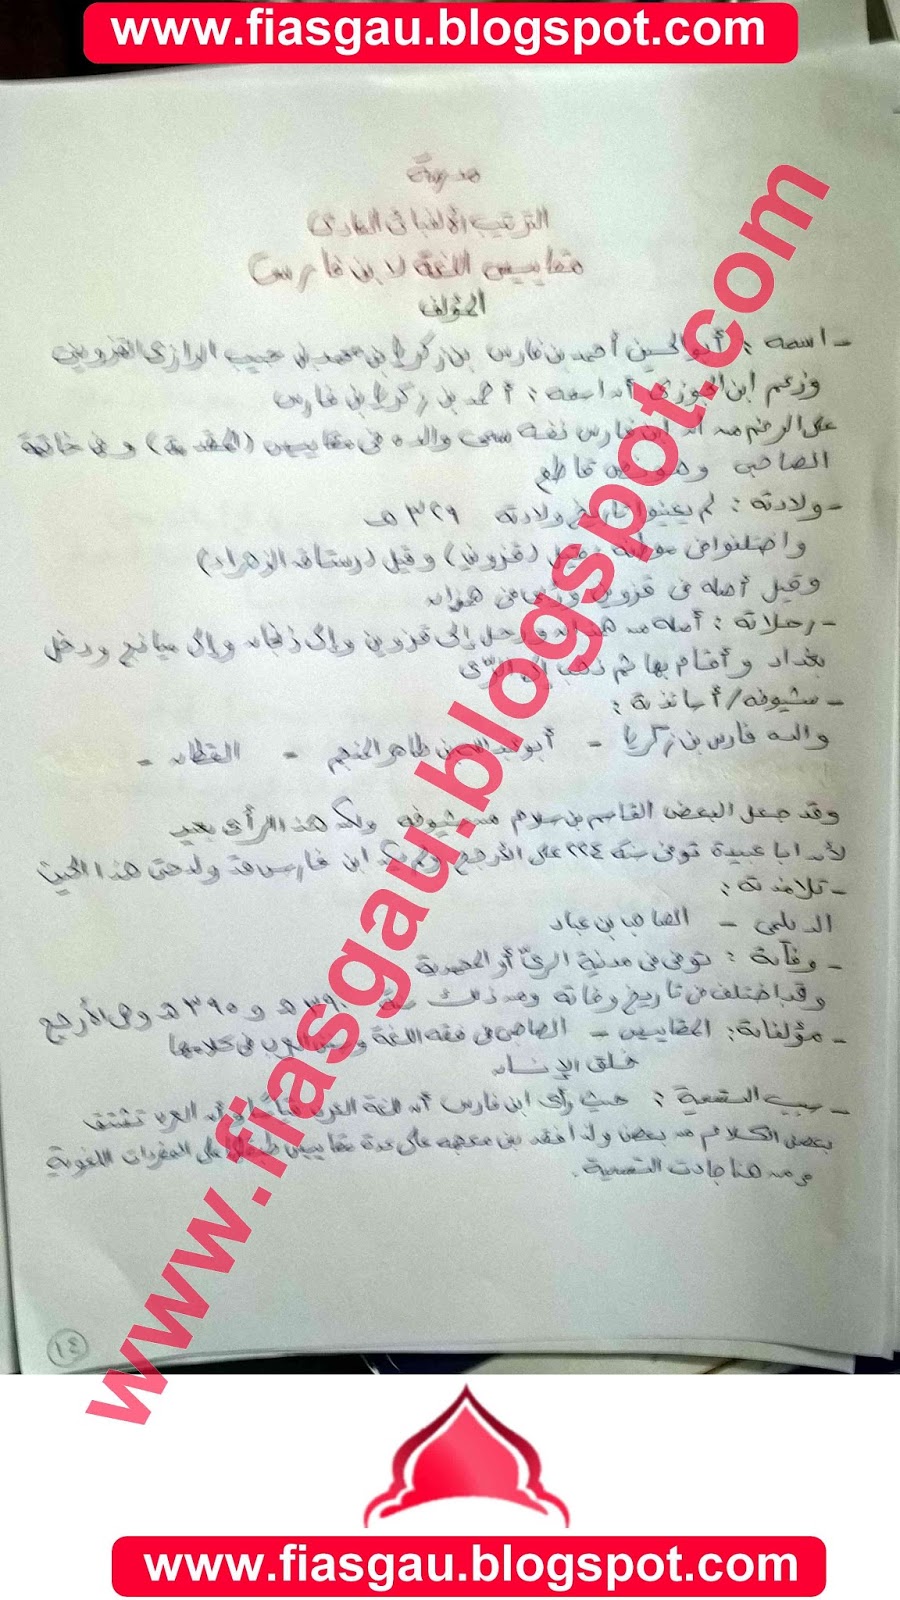 www.fiasgau.blogspot.com
مدرسة
الترتيب الألفبائى العادى
مقاييس اللغة لابن فارس
المؤلف
- اسمه : أبو الحسين أحمد بن فارس بن زكريا بن محمد بن حبيب الرازى القزوينى
وزعم ابن الجوزى أن اسمه : أحمد بن زكريا بن فارس
على الرغم من أن ابن فارس نفسه سمى والده فى مقاييس (المقدمة) وفى خاتمة
الصاحبى وهو نص قاطع
- ولادته : لم يعينوا تاريخ ولادته ٣٢٩ هـ
واختلفوا فى موطنه فقيل (قزوين) وقيل (رستاق الزهراء)
وقيل أصله فى قزوين فى همذان
- رحلاته : أصله من همذان ورحل إلى قزوين وإلى زنجان وإلى ميانج ودخل
بغداد وأقام بها ثم ذهب إلى الرى
- شيوخه/أساتذته :
والده فارس بن زكريا - أبو عبدالله بن طاهر المنجم - القطان -
وقد جعل البعض القاسم بن سلام من شيوخه ولكن هذا الرأى بعيد
لأن ابا عبيدة توفى سنة ٢٢٤ على الأرجح ولم يكن ابن فارس قد ولد حتى هذا الحين
- تلامذته :
الديلمى - الصاحب بن عباد
- وفاته : توفى فى مدينة الرىّ أو المحمدية
وقد اختلف فى تاريخ وفاته ومن ذلك سنة ٣٩٠ هـ و ٣٩٥ هـ وهى الأرجح
- مؤلفاته : المقاييس - الصاحبى فى فقه اللغة وسنن العرب فى كلامها
خلق الإنسان
- سبب التسمية : حيث رأى ابن فارس أن للغة العرب قياسًا وأن العرب تشتق
بعض الكلام من بعض ولذا فقد بنى معجمه على عدة مقاييس المفردات اللغوية
ومن هنا جاءت التسمية .
١٤
www.fiasgau.blogspot.com
www.fiasgau.blogspot.com